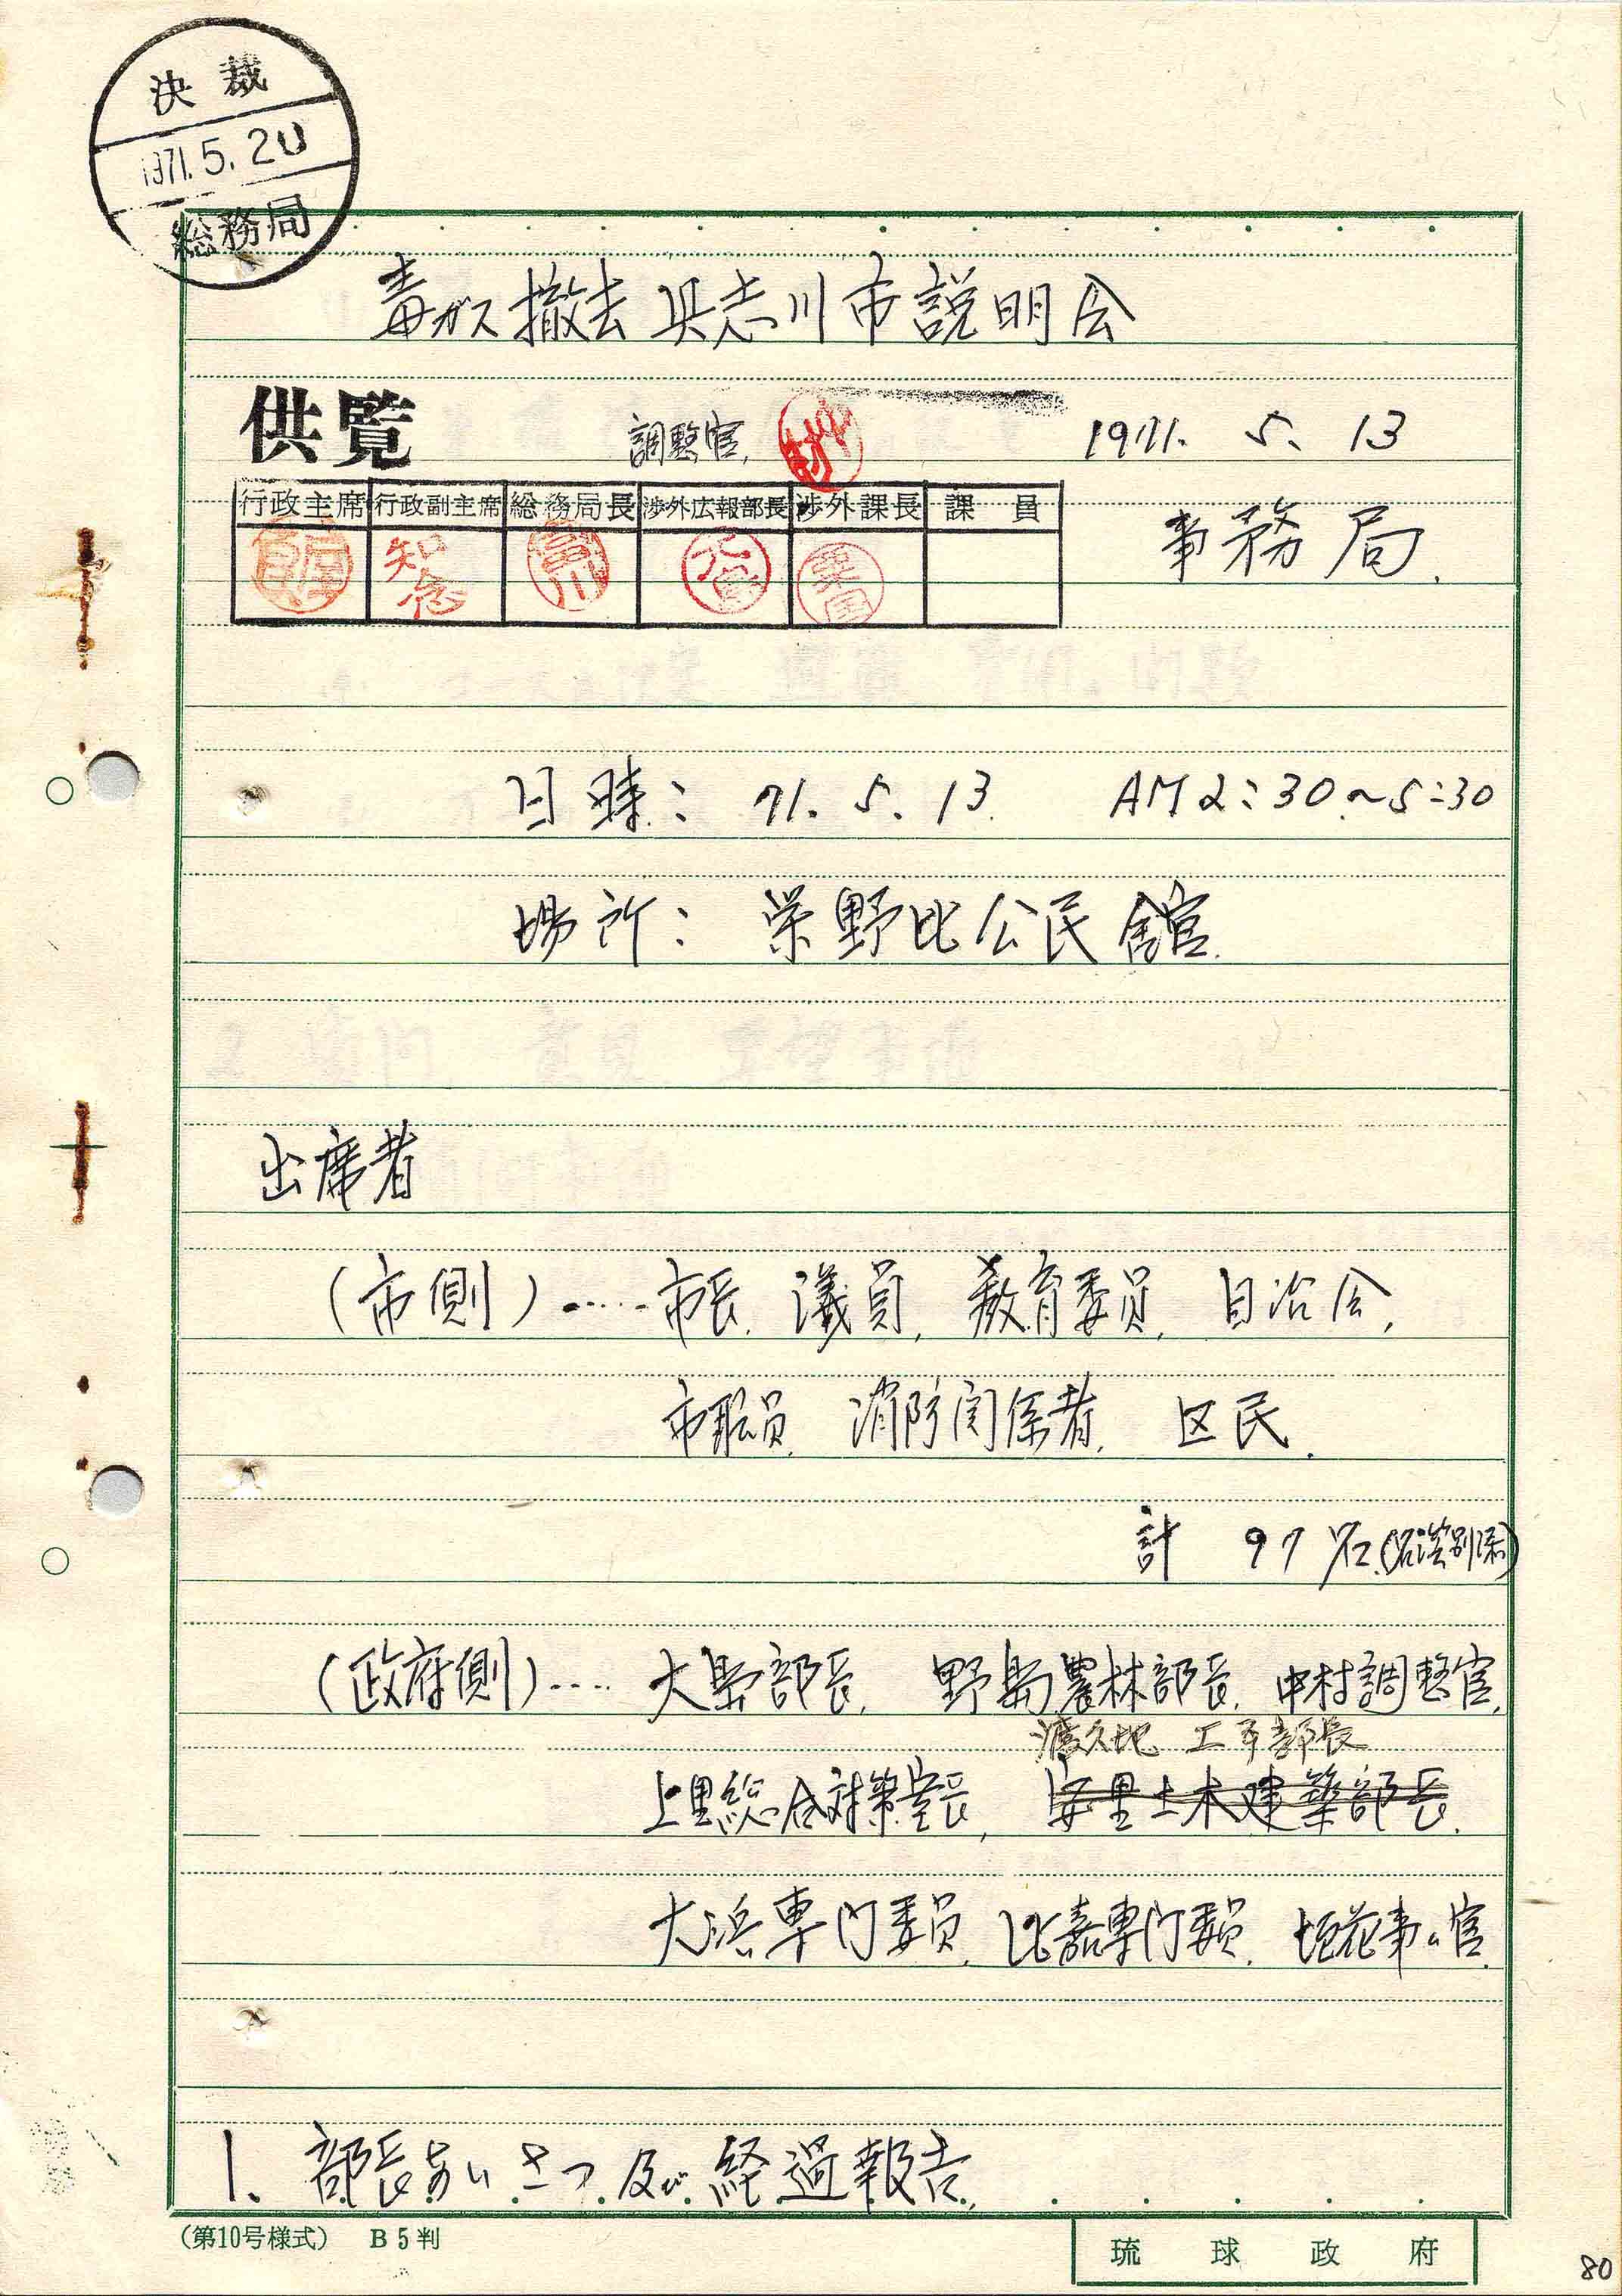 決裁
1971.5.20
総務局
毒ガス撤去 具志川市説明会
供覧
調整官
1971. 5. 13
行政主席 行政副主席 総務局長 渉外広報部長 渉外課長 課員
知念
事務局
日時: 71. 5. 13. AM 2:30~5:30
場所: 栄野比公民館
出席者
(市側)……市長、議員、教育委員、自治会、
市職員、消防関係者、区民
計 97名(名簿別添)
(政府側)…‥大島部長、野島農林部長、中村調整官、
工事部長
上里総合対策室長、安里土木建築部長
大浜専門委員、比嘉専門委員、垣花事ム官
1. 部長あいさつ及び経過報告
(第10号様式) B5判
琉球政府
80